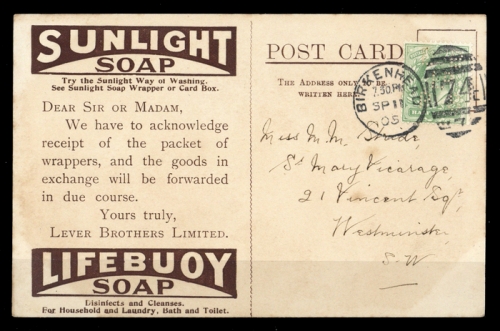 SUNLIGHT
SOAP
Try the Sunlight Way of Washing.
See Sunlight Soap Wrapper or Card Box.
DEAR SIR OR MADAM,
We have to acknowledge
receipt of the packet of
wrappers, and the goods in
exchange will be forwarded
in due course.
Yours truly,
LEVER BROTHERS LIMITED.
LIFEBUOY
SOAP
Disinfects and Cleanses.
For Household and Laundry, Bath and Toilet.
POST CARD
THE ADDRESS ONLY
WRITTEN HERE
BIRKENHEAD
7.30 PM
SP 11
05
Miss M. M.
St Mary Vicarage,
21 Vincent Sqre
Westminster
S.W